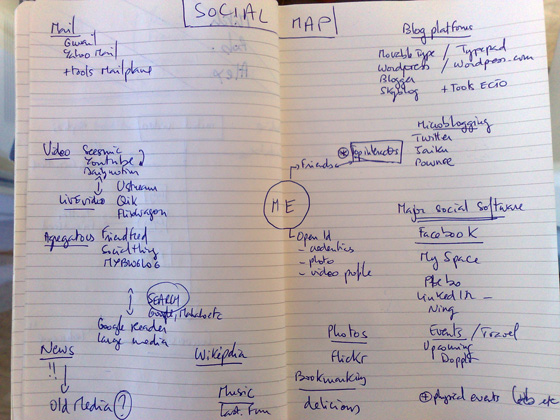 SOCIAL MAP
Mail
Gmail
Yahoo Mail
+ tools Mailplane
Video Seesmic
Youtube
Dailymotion
Live video Ustream
Qik
Flixwagon
Agregators Friendfeed
Socialthing
MYBLOGLOG
SEARCH
Google,
Google reader
media
News
!!
Old Media ?
Wikipedia
Music
Last.fm
Blog platforms
Movable Type / Typepad
Wordpress / Wordpress.com
Blogger
Skyblog + Tools ECTO
Microblogging
Twitter
Jaiku
Pownce
Friends
ME
Open Id
- photo
- video profile
Major social software
Facebook
My Space
Plebo
LinkedIn -
Ning
Photos
flickr
Bookmarking
delicious
Events / Travel
Upcoming
Dopplr
+ physical events